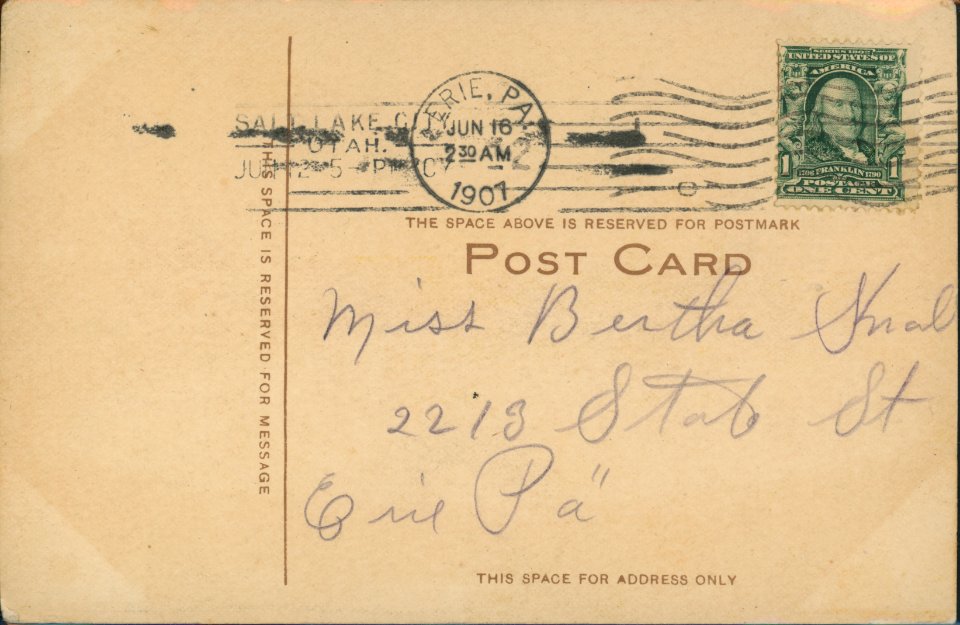 SERIES 1902
UNITED STATES OF
AMERICA
1706 FRANKLIN 1790
POSTAGE
1 ONE CENT 1
SALT LAKE C
UTAH.
JUN 12 5 - P
ERIE, PA.
JUN 16
2 30 AM
1907
2
THE SPACE ABOVE IS RESERVED FOR POSTMARK
POST CARD
THIS SPACE IS RESERVED FOR MESSAGE
Miss Bertha
2213 State St
Erie Pa"
THIS SPACE FOR ADDRESS ONLY